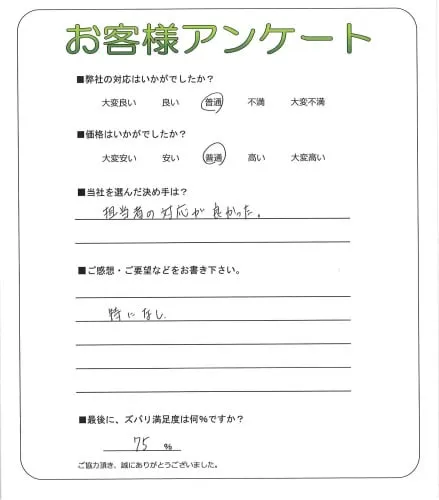 お客様アンケート
■弊社の対応はいかがでしたか？
大変良い 良い 普通 不満 大変不満
■価格はいかがでしたか？
大変安い 安い 普通 高い 大変高い
■当社を選んだ決め手は？
担当者の対応が良かった。
■ご感想・ご要望などをお書き下さい。
特になし
■最後に、ズバリ満足度は何%ですか？
75 %
ご協力頂き、誠にありがとうございました。